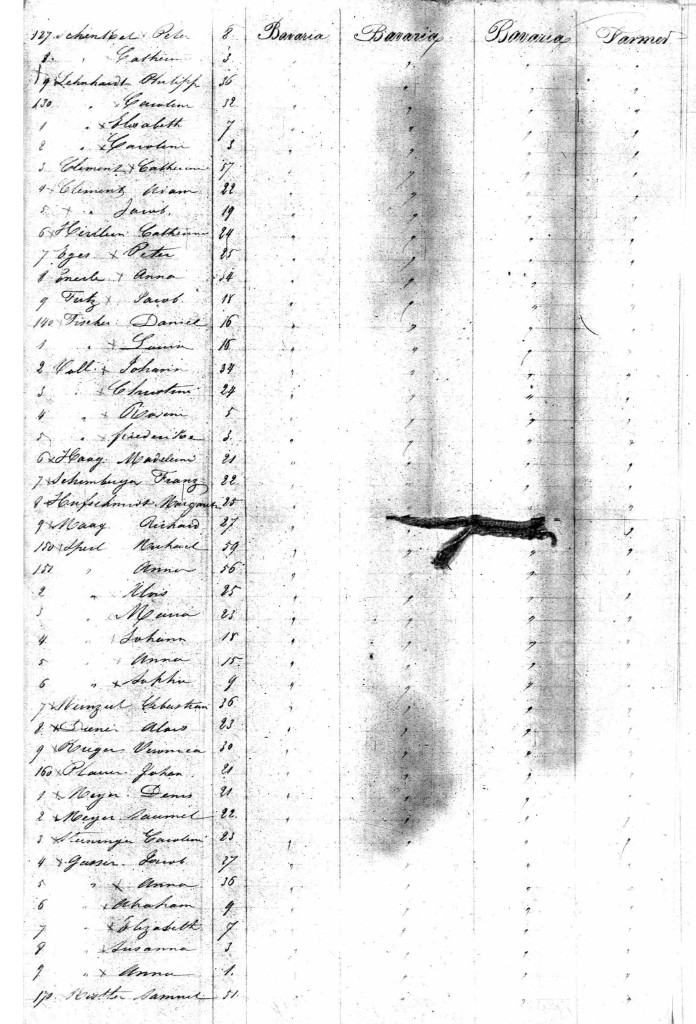 127 Peter 8 Bavaria Bavaria Bavaria Farmer
8 " Cathern 3 " " " "
9 Lehnhardt Philipp 36 " " " "
130 " Carolin 32 " " " "
1 " Elisabeth 7 " " " "
2 " Carolin 3 " " " "
3 Clement Catherine 57 " " " "
4 Clement Adam 22 " " " "
5 " Jacob 19 " " " "
6 Catherine 24 " " " "
7 Eges Peter 25 " " " "
8 Anna 34 " " " "
9 Jacob 18 " " " "
140 Fischer Daniel 16 " " " "
1 " 16 " " " "
2 Johann 34 " " " "
3 " Christine 24 " " " "
4 " 5 " " " "
5 " Frederike 3 " " " "
6 Haag Madeleine 21 " " " "
7 Franz 22 " " " "
8 Hufschmidt Margaret 25 " " " "
9 Maag Richard 27 " " " "
150 Michael 59 " " " "
151 " Anna 56 " " " "
2 " Alois 25 " " " "
3 " Maria 23 " " " "
4 " Johann 18 " " " "
5 " Anna 15 " " " "
6 " Sophie 9 " " " "
7 Sebastian 36 " " " "
8 Alois 23 " " " "
9 Rieger Veronica 30 " " " "
160 Johan 21 " " " "
1 Meyer Denis 21 " " " "
2 Meyer Samuel 22 " " " "
3 Carolin 23 " " " "
4 Gasser Jacob 37 " " " "
5 " Anna 36 " " " "
6 " Abraham 9 " " " "
7 " Elizabeth 7 " " " "
8 " Susanna 3 " " " "
9 " Anna 1 " " " "
170 Samuel 51 " " " "